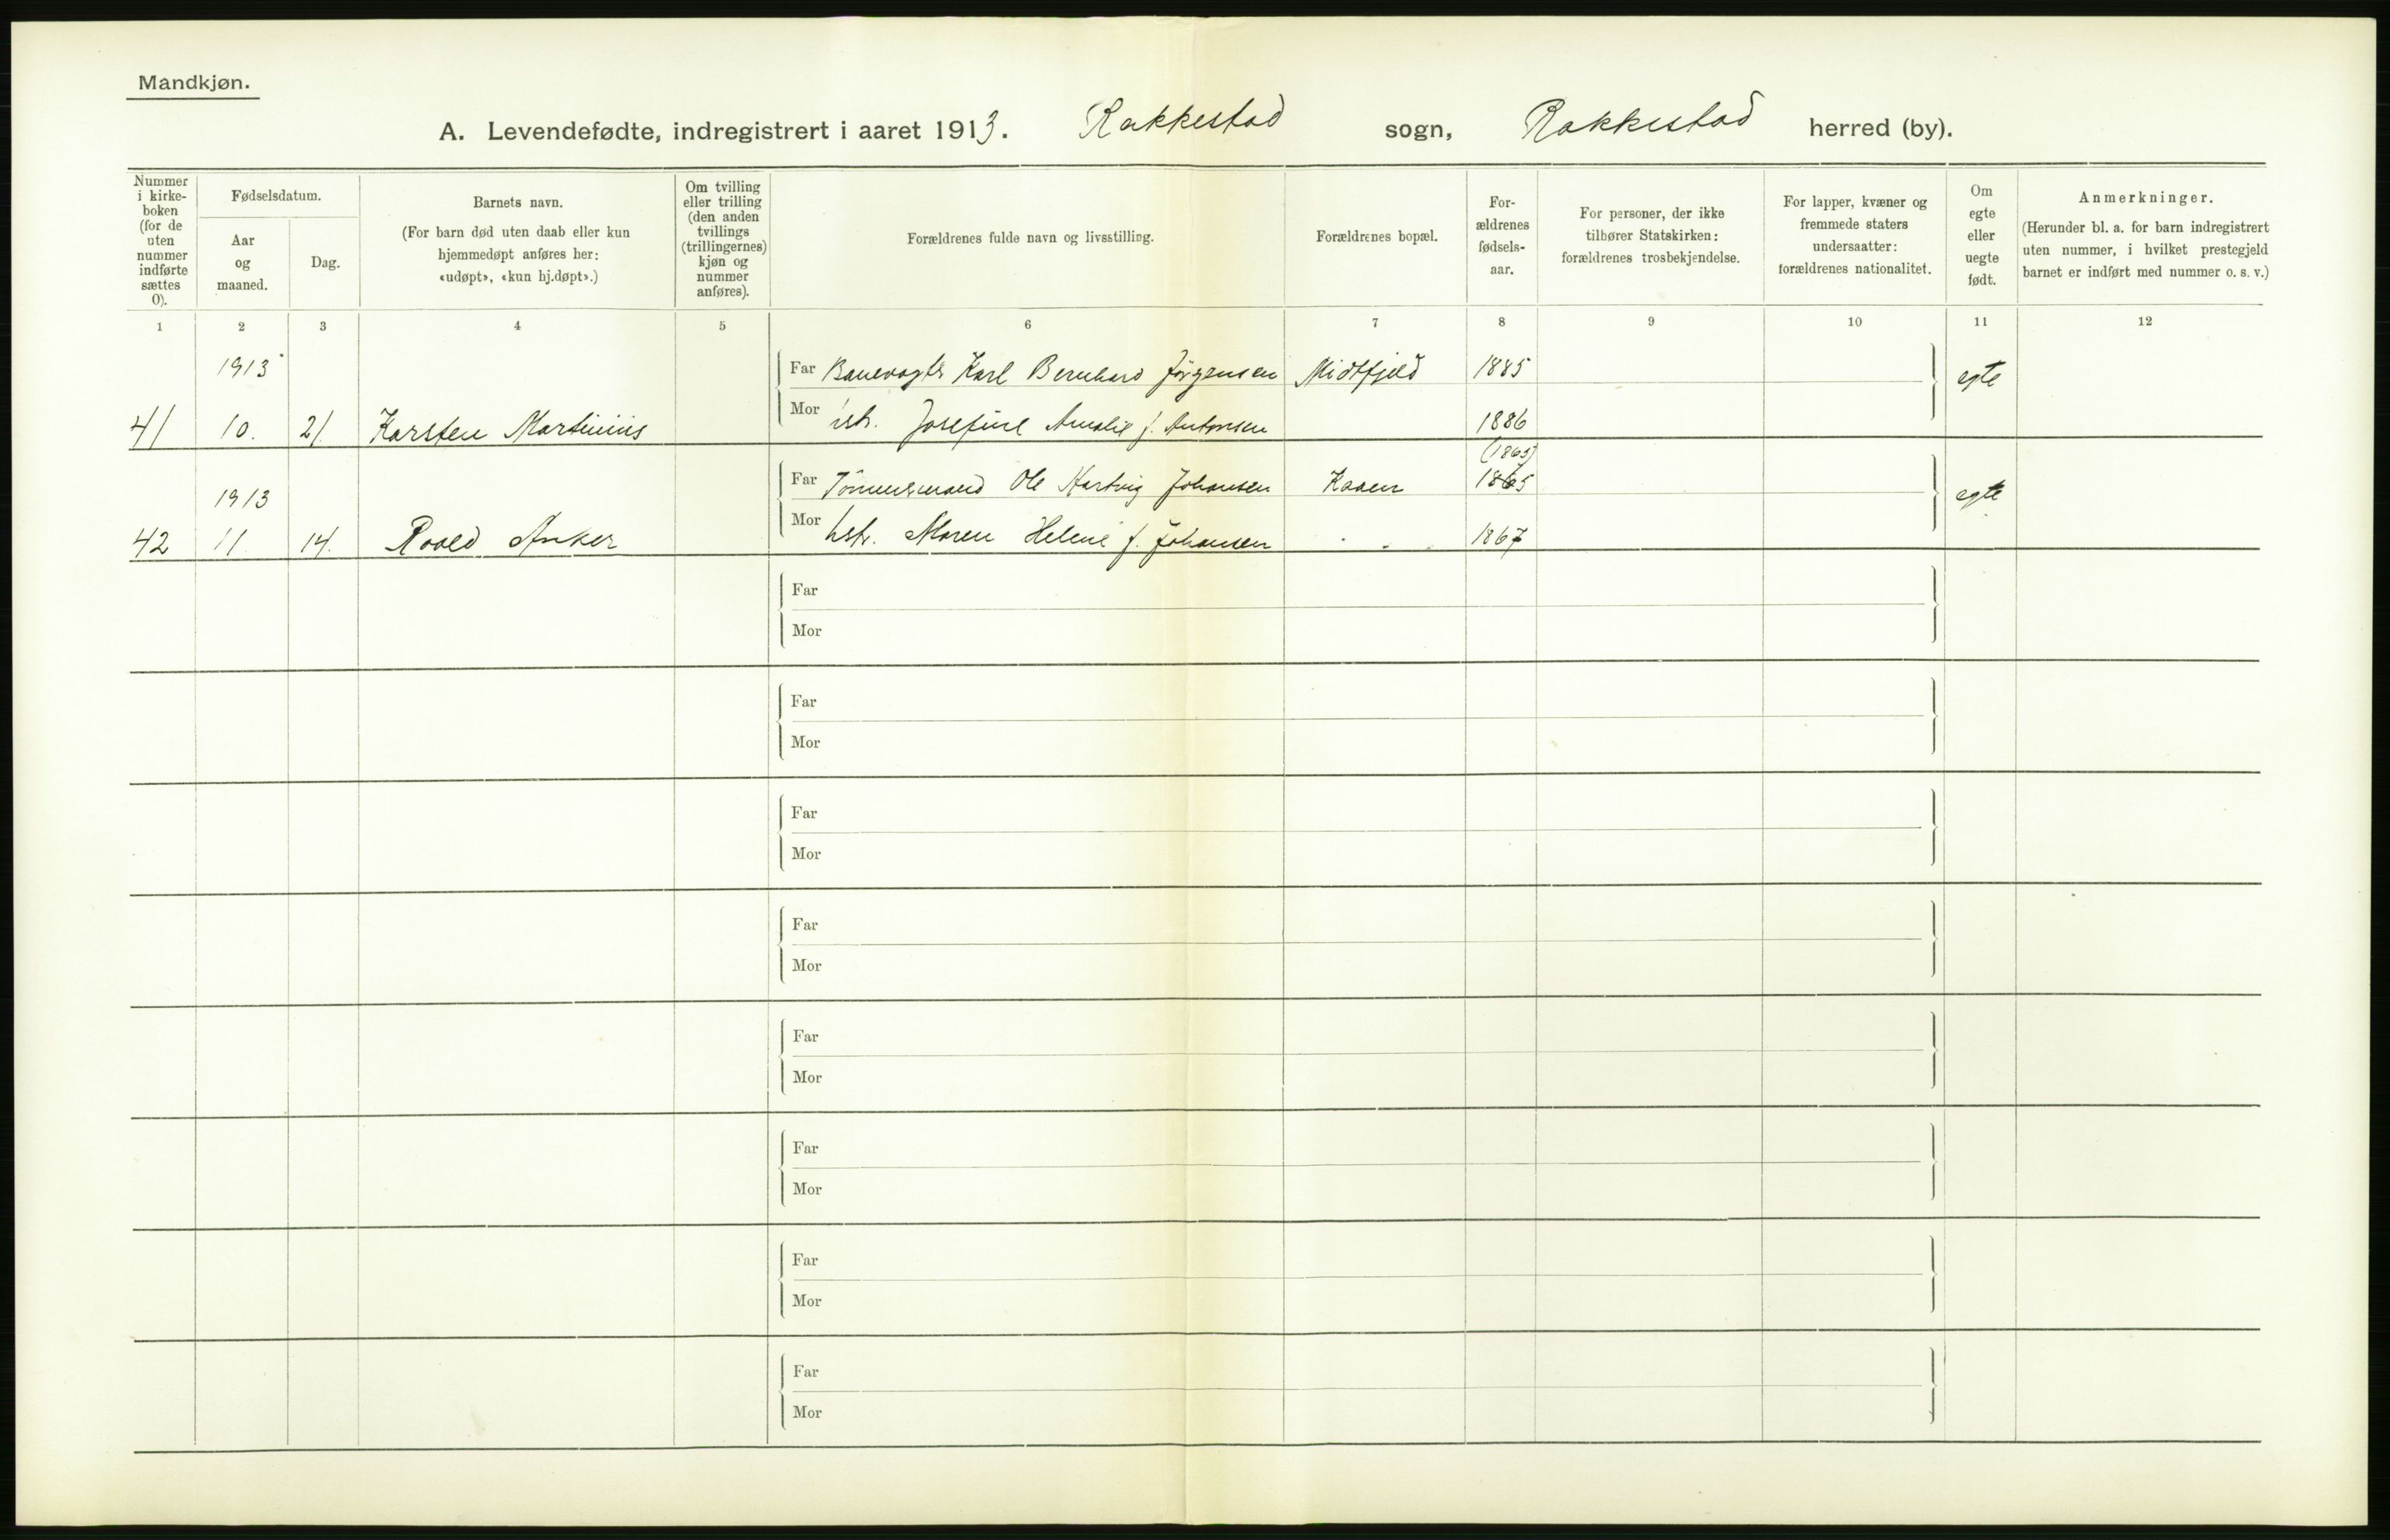 Mandkjøn.
A. Levendefødte, indregistrert i aaret 1913. Rakkestad sogn, Rakkestad herred (by).
Nummer i kirke-boken (for de uten nummer indførte sættes 0).
Fødselsdatum.
Aar og maaned.
Dag.
Barnets navn.
(For barn død uten daab eller kun hjemmedøpt anføres her: «udøpt», «kun hj.døpt».)
Om tvilling eller trilling (den anden tvillings (trillingernes) kjøn og nummer anføres).
Forældrenes fulde navn og livsstilling.
Forældrenes bopæl.
For-ældrenes fødsels-aar.
For personer, der ikke tilhører Statskirken: forældrenes trosbekjendelse.
For lapper, kvæner og fremmede staters undersaatter: forældrenes nationalitet.
Om egte eller uegte født.
Anmerkninger.
(Herunder bl. a. for barn indregistrert uten nummer, i hvilket prestegjeld barnet er indført med nummer o. s. v.)
1 2 3 4 5 6 7 8 9 10 11 12
1913 Far Banevogter Karl Bernhard Jörgensen Midtfjeld 1885 egte
41 10. 21. Karsten Martinius Mor hstr. Josefine Amalie f. Antonsen 1886
(1865)
1913 Far Tömmermand Ole Hartvig Johansen Kaaen 1865 egte
42 11 14. Roald Anker Mor hstr. Maren Helene f. Johansen - - 1867
Far
Mor
Far
Mor
Far
Mor
Far
Mor
Far
Mor
Far
Mor
Far
Mor
Far
Mor